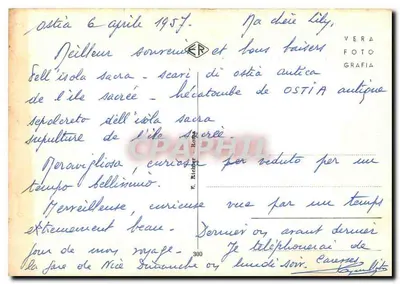 Ostia 6 aprile 1957. Ma chère Lily,
Meilleur souvenir et bons baisers
VERA
FOTO
GRAFIA
Dell'isola sacra - scavi di ostia antica
de l'île sacrée - hécatombe de OSTIA antique
sepolcreto dell'isola sacra
supulture de l'île sacrée.
Meravigliosa, curiosa per veduto per un
tempo bellissimo.
Merveilleuse, curieuse vue par un temps
extremement beau. - Dernier ou avant dernier
jour de mon voyage. - Je téléphonerai de
la gare de Nice Dimanche ou lundi soir.
300
CPAPHIL.com